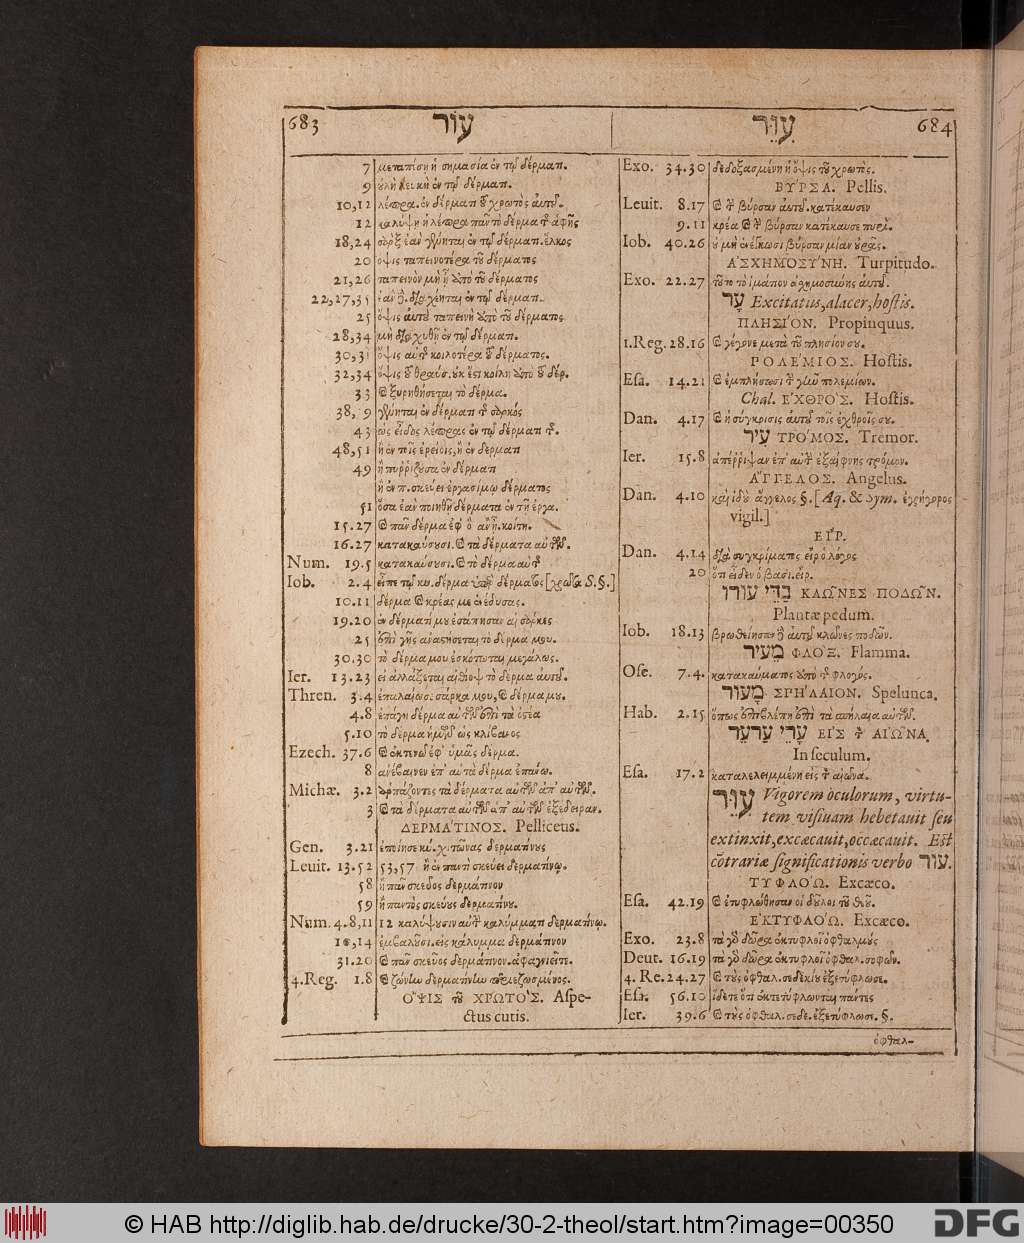 683 עור
7 μεταπέσῃ ἡ σημασία ἐν τῷ δέρματι.
9 οὐλὴ λευκὴ ἐν τῷ δέρματι.
10,12 λέπρα. ἐν δέρματι τοῦ χρωτὸς αὐτοῦ.
12 καλύψῃ ἡ λέπρα πᾶν τὸ δέρμα τῆς ἁφῆς
18,24 σὰρξ ἐὰν γένηται ἐν τῷ δέρματι. ἕλκος
20 ὄψις ταπεινοτέρα τοῦ δέρματος
21,26 ταπεινὸν μὴ ᾖ ἀπὸ τοῦ δέρματος
22,27,35 ἐὰν δὲ. διαχέηται ἐν τῷ δέρματι.
25 ὄψις αὐτοῦ ταπεινὴ ἀπὸ τοῦ δέρματος
28,34 μὴ διαχυθῇ ἐν τῷ δέρματι.
30,31 ὄψις αὐτῆς κοιλοτέρα τοῦ δέρματος.
32,34 ὄψις τοῦ θραύσ. οὐκ ἔστι κοίλη ἀπὸ τοῦ δέρ.
33 καὶ ξυρηθήσεται τὸ δέρμα.
38, 9 γένηται ἐν δέρματι τῆς σαρκός
43 ὡς εἶδος λέπρας ἐν τῷ δέρματι τῆς.
48,51 ἢ ἐν τοῖς ἐρεοῖς, ἢ ἐν δέρματι
49 ἢ πυρρίζουσα ἐν δέρματι
ἢ ἐν π. σκεύει ἐργασίμῳ δέρματος
51 ὅσα ἐὰν ποιηθῇ δέρματα ἐν τῇ ἐργα.
15.27 καὶ πᾶν δέρμα ἐφ' ὃ ἂν ᾖ. κοίτη.
16.27 κατακαύσουσι. καὶ τὰ δέρματα αὐτῶν.
Num. 19.5 κατακαύσουσι. καὶ τὸ δέρμα αὐτῆς
Iob. 2.4 εἶπε τῷ κυ. δέρμα ὑπὲρ δέρματος [χρῶτα S.§.]
10.11 δέρμα καὶ κρέας με ἐνέδυσας.
19.20 ἐν δέρματί μου ἐσάπησαν αἱ σάρκες
25 ἐπὶ γῆς ἀναστήσεται τὸ δέρμα μου.
30.30 τὸ δέρμα μου ἐσκότωται μεγάλως.
Ier. 13.23 εἰ ἀλλάξεται αἰθίοψ τὸ δέρμα αὐτοῦ.
Thren. 3.4 ἐπαλαίωσε σάρκα μου, καὶ δέρμα μου.
4.8 ἐπάγη δέρμα αὐτῶν ἐπὶ τὰ ὀστέα
5.10 τὸ δέρμα ἡμῶν ὡς κλίβανος
Ezech. 37.6 καὶ ἐκτενῶ ἐφ' ὑμᾶς δέρμα.
8 ἀνέβαινεν ἐπ' αὐτὰ δέρμα ἐπάνω.
Michæ. 3.2 ἁρπάζοντες τὰ δέρματα αὐτῶν ἀπ' αὐτῶν.
3 καὶ τὰ δέρματα αὐτῶν ἀπ' αὐτῶν ἐξέδειραν.
ΔΕΡΜΑΤΙΝΟΣ. Pelliceus.
Gen. 3.21 ἐποίησε κύ. χιτῶνας δερματίνους
Leuit. 13.52 53,57 ἢ ἐν παντὶ σκεύει δερματίνῳ.
58 ἢ πᾶν σκεῦος δερμάτινον
59 ἢ παντὸς σκεύους δερματίνου.
Num. 4.8,11 12 καλύψουσιν αὐτὴν καλύμματι δερματίνῳ.
10,14 ἐμβαλοῦσι. εἰς κάλυμμα δερμάτινον
31.20 καὶ πᾶν σκεῦος δερμάτινον. ἀφαγνιεῖτε.
4.Reg. 1.8 καὶ ζώνην δερματίνην περιεζωσμένος.
ὌΨΙΣ τοῦ ΧΡΩΤΟΣ. Aspe-
ctus cutis.
עִוֵּר 684
Exo. 34.30 δεδοξασμένη ἡ ὄψις τοῦ χρωτὸς.
ΒΥΡΣΑ. Pellis.
Leuit. 8.17 καὶ τὴν βύρσαν αὐτοῦ. κατέκαυσεν
9.11 κρέα καὶ τὴν βύρσαν κατέκαυσε πυρί.
Iob. 40.26 οὐ μὴ ἐνέγκωσι βύρσαν μίαν οὐρᾶς.
ΑΣΧΗΜΟΣΥΝΗ. Turpitudo.
Exo. 22.27 τοῦτο τὸ ἱμάτιον ἀσχημοσύνης αὐτοῦ.
עָר Excitatus, alacer, hostis.
ΠΛΗΣΙΟΝ. Propinquus.
1.Reg. 28.16 καὶ γέγονε μετὰ τοῦ πλησίον σου.
ΠΟΛΕΜΙΟΣ. Hostis.
Esa. 14.21 καὶ ἐμπλήσωσι τὴν γῆν πολεμίων.
Chal. ΕΧΘΡΟΣ. Hostis.
Dan. 4.17 καὶ ἡ σύγκρισις αὐτοῦ τοῖς ἐχθροῖς σου.
עִיר ΤΡΟΜΟΣ. Tremor.
Ier. 15.8 ἀπέρριψαν ἐπ' αὐτὴν ἐξαίφνης τρόμον.
ΑΓΓΕΛΟΣ. Angelus.
Dan. 4.10 καὶ ἰδοὺ ἄγγελος §. [Aq. & Sym. ἐγρήγορος
vigil.]
ΕΙΡ.
Dan. 4.14 διὰ συγκρίματος εἲρ ὁ λόγος
20 ὅτι εἶδεν ὁ βασι. εἲρ.
בַּדֵּי עוֹרוֹ ΚΛΩΝΕΣ ΠΟΔΩΝ.
Plantæ pedum.
Iob. 18.13 βρωθείησαν δὲ αὐτοῦ κλῶνες ποδῶν.
מֵעִיר ΦΛΟΞ. Flamma.
Ose. 7.4. κατακαύματος ἀπὸ τῆς φλογός.
מָעוֹר ΣΠΗΛΑΙΟΝ. Spelunca.
Hab. 2.15 ὅπως ἐπιβλέπῃ ἐπὶ τὰ σπήλαια αὐτῶν.
עָרֵי עֲרֹעֵר ΕΙΣ τὸν ΑΙΩΝΑ.
In seculum.
Esa. 17.2 καταλελειμμένη εἰς τὸν αἰῶνα.
עִוֵּר Vigorem oculorum, virtu-
tem visiuam hebetauit seu
extinxit, excæcauit, occæcauit. Est
cōtrariæ significationis verbo עור.
ΤΥΦΛΟΩ. Excæco.
Esa. 42.19 καὶ ἐτυφλώθησαν οἱ δοῦλοι τοῦ θεοῦ.
ΕΚΤΥΦΛΟΩ. Excæco.
Exo. 23.8 τὰ γὰρ δῶρα ἐκτυφλοῖ ὀφθαλμοὺς
Deut. 16.19 τὰ γὰρ δῶρα ἐκτυφλοῖ ὀφθαλ. σοφῶν.
4. Re. 24.27 καὶ τοὺς ὀφθαλ. σεδεκίου ἐξετύφλωσε.
Esa. 56.10 ἴδετε ὅτι ἐκτετύφλωνται πάντες
Ier. 39.6 καὶ τοὺς ὀφθαλ. σεδε. ἐξετύφλωσε. §.
ὀφθαλ-
© HAB http://diglib.hab.de/drucke/30-2-theol/start.htm?image=00350
DFG